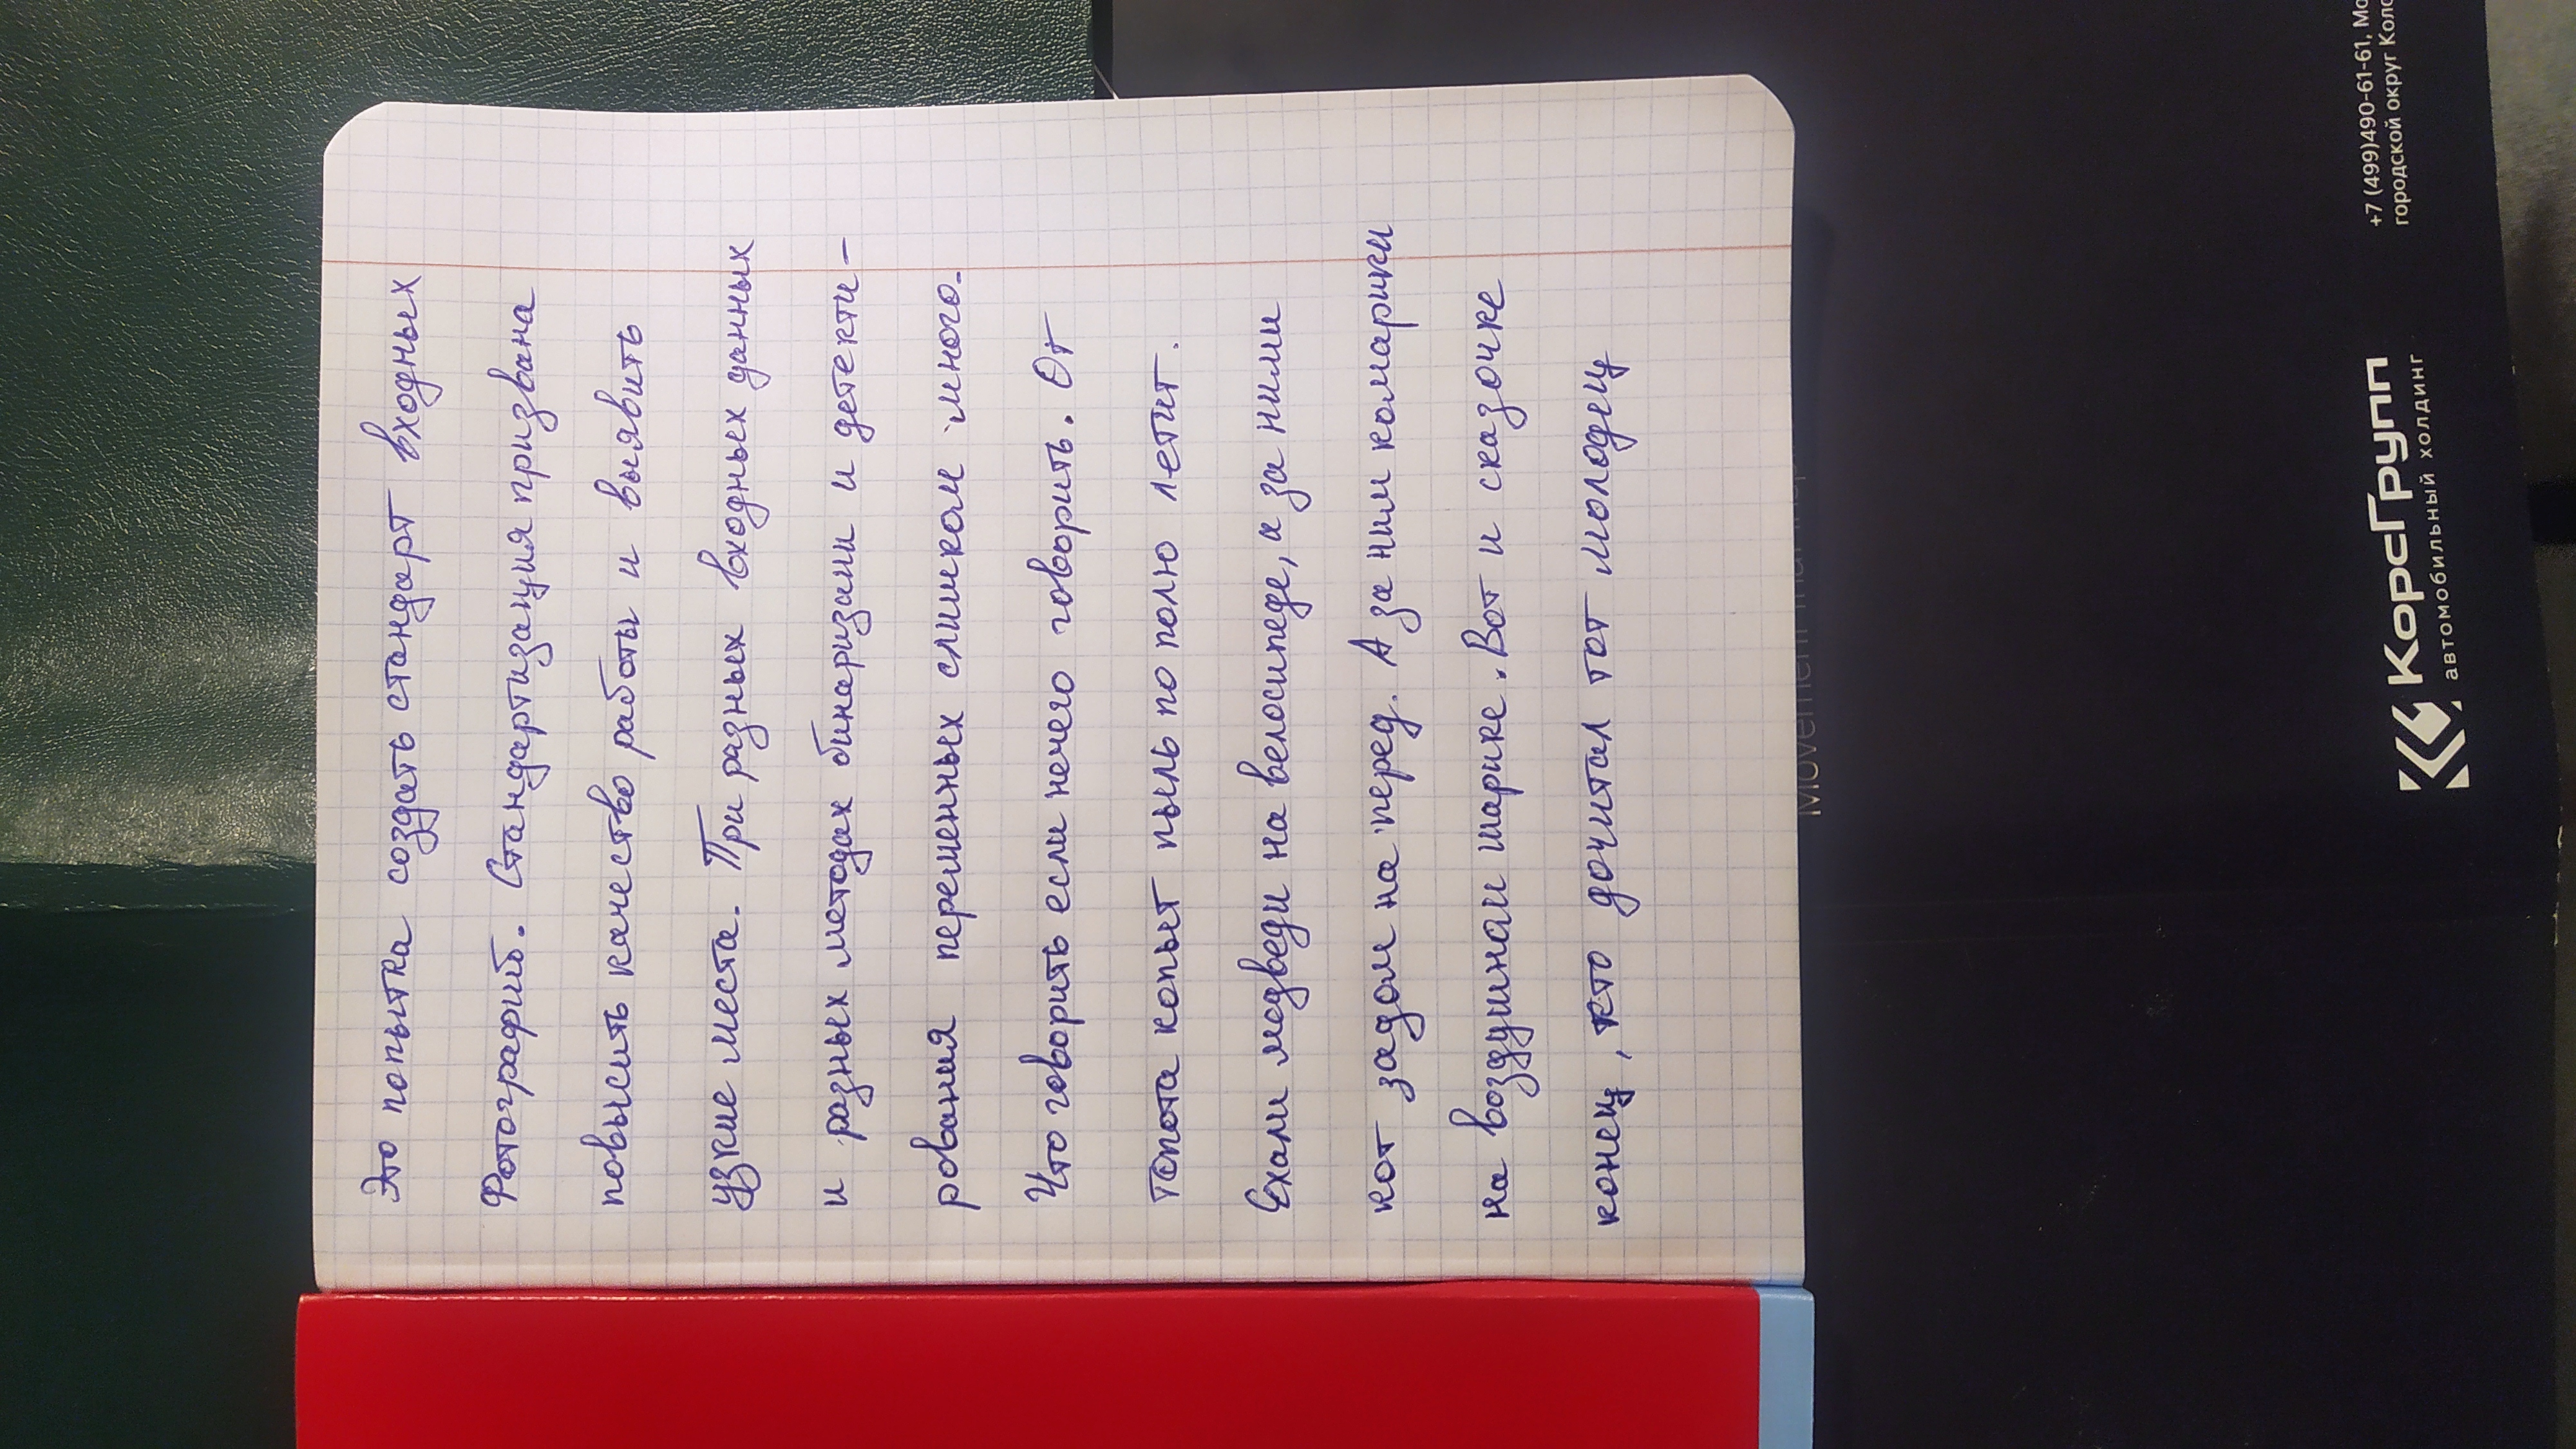 Это попытка создать стандарт входных
Фотографий. Стандартизация призвана
повысить качество работы и выявить
узкие места. При разных входных данных
и разных методах бинаризации и детекти-
рования переменных слишком много.
Что говорить если нечего говорить. От
топота копыт пыль по полю летит.
Ехали медведи на велосипеде, а за ними
кот задом на перед. А за ним комарики
на воздушном шарике. Вот и сказочке
конец, кто дочитал тот молодец
Movement that
КорсГрупп
автомобильный холдинг
+7 (499)490-61-61, Мо
городской округ Коло